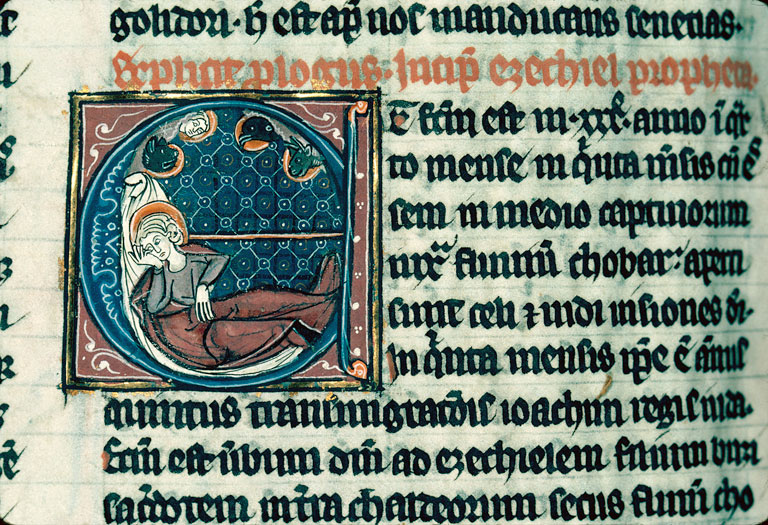 h̄ est ap̄ nos manducans senecias.
Explicit p̄logus. Incip̄ ezechiel prophета.
ET fc̄m est in .xxx. anno ī q̄r
to mense in q̄nta m̄sis cū eēs
sem in medio captiuorum
iuxᵃ fluuiū chobar: aperti
sunt celi ⁊ uidi uisiones d̄i.
In q̄nta mensis ip̄e ē annus
quintus transmigrac̄ōis ioachim regis iuda.
fc̄m est ūbum dn̄i ad ezechielem filium buzi
sac̄dotem in t̄ra chaldeorum secus flumē cho